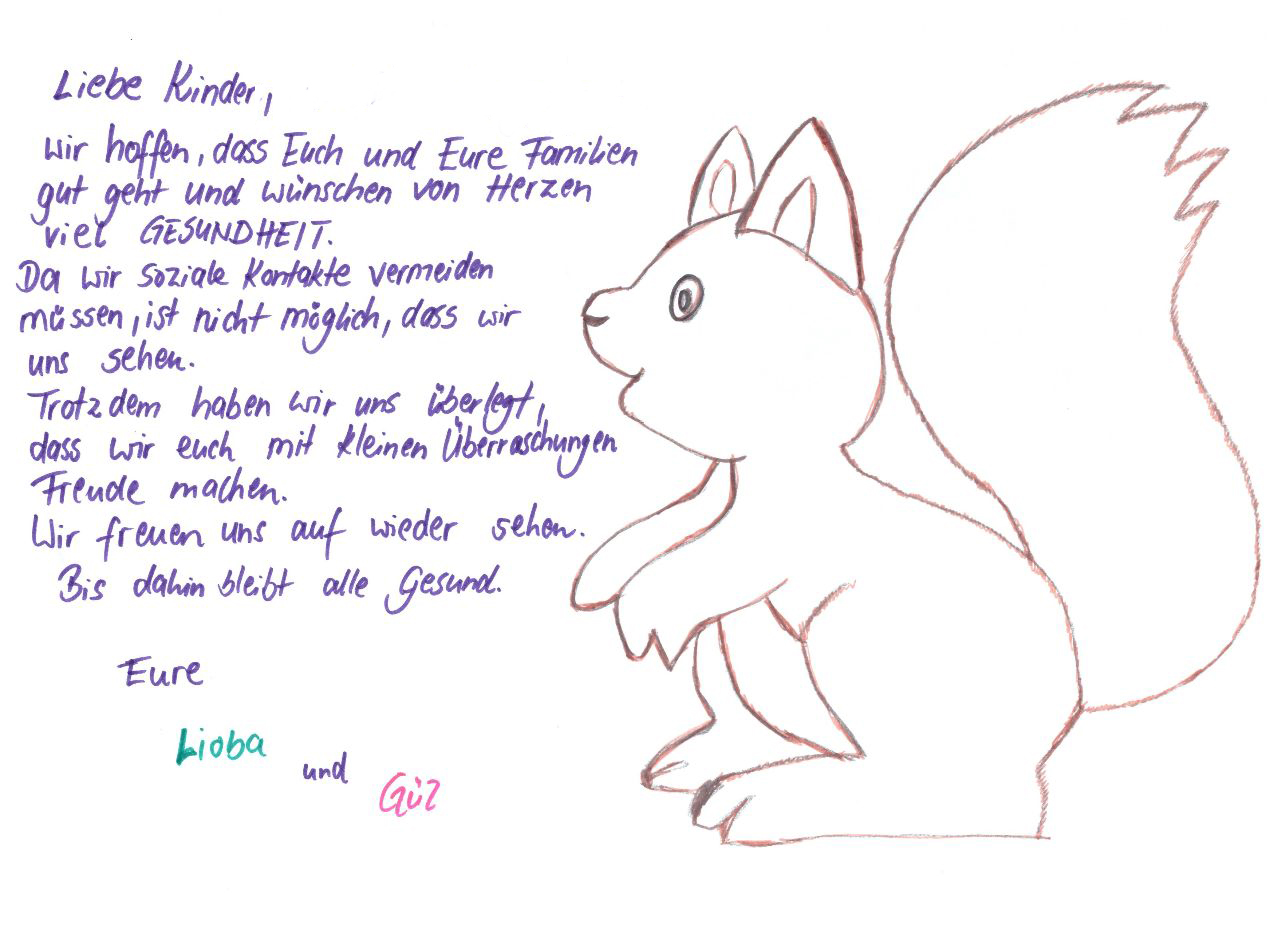 Liebe Kinder,
wir hoffen, dass Euch und Eure Familien
gut geht und wünschen von Herzen
viel GESUNDHEIT.
Da wir soziale Kontakte vermeiden
müssen, ist nicht möglich, dass wir
uns sehen.
Trotzdem haben wir uns überlegt,
dass wir euch mit kleinen Überraschungen
Freude machen.
Wir freuen uns auf wieder sehen.
Bis dahin bleibt alle Gesund.
Eure
Lioba
und
Gül